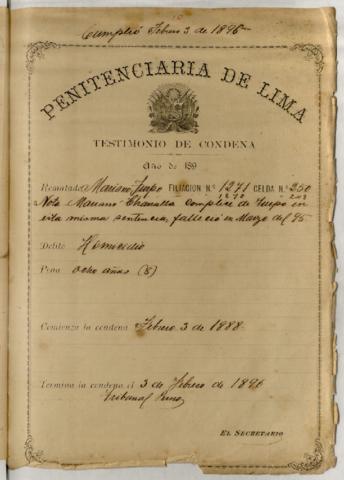 Cumplió Febrero 3 de 1896
PENITENCIARIA DE LIMA
TESTIMONIO DE CONDENA
Año de 189
Rematado Mariano FILIACION N.° 1271 CELDA N.° 250
1272
Nota Mariano complice de en
esta misma sentencia, falleció en Marzo del 95
Delito Homicidio
Pena ocho años (8)
Comienza la condena Febrero 3 de 1888
Termina la condena el 3 de Febrero de 1896
Tribunal
EL SECRETARIO